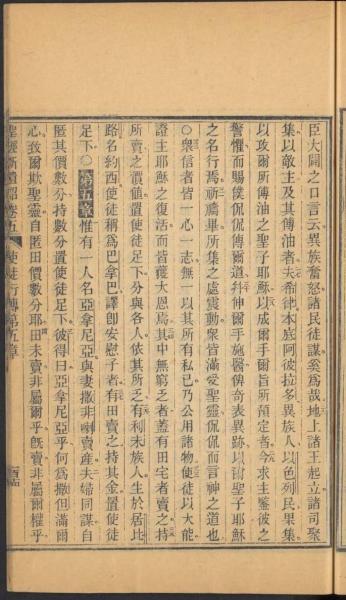 臣大闢之口言云異族奮怒諸民徒謀奚爲哉地上諸王起立諸司聚
集以敵主及其傅油者夫希律本底阿彼拉多異族人以色列民果集
以攻爾所傅油之聖子耶穌以成爾手爾旨所預定者今求主鑒彼之
警惟而賜僕侃侃傅爾道廾伸爾手施醫俾奇表異跡以爾聖子耶穌
之名行焉祈禱畢所集之處震動衆皆滿受聖靈侃侃而言神之道也
○衆信者皆一心一志無一以其所有私已乃公用諸物使徒以大能
證主耶穌之復活而皆獲大恩焉其中無窮乏者蓋有田宅者賣之持
所賣之價値置使徒足下分與各人依其所乏有利未族人生於居比
路名約西使徒稱爲巴拿巴譯卽安慰子者有田賣之持其金置使徒
足下○第五章惟有一人名亞拿尼亞與妻撒非喇賣產夫婦同謀自
匿其價數分持數分置使徒足下彼得曰亞拿尼亞乎何爲撒但滿爾
心致爾欺聖靈自匿田價數分耶田未賣非屬爾乎旣賣非屬爾權乎
聖經新遺詔卷五 使徒行傳第五章